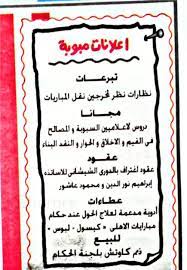 إعلانات مبوبة
تبرعات
نظارات نظر لمخرجين نقل المباريات
مجانا
دروس لاعلاميين السبوبة و المصالح
في القيم و الاخلاق و الحوار و النقد البناء
عقود
عقود احتراف بالدوري الشيشاني للاساتذه
إبراهيم نور الدين و محمود عاشور
عطاءات
أدوية مدعمة لعلاج الحول عند حكام
مباريات الاهلى « كبسول - لبوس »
للبيع
ذم كاوتش بلجنة الحكام